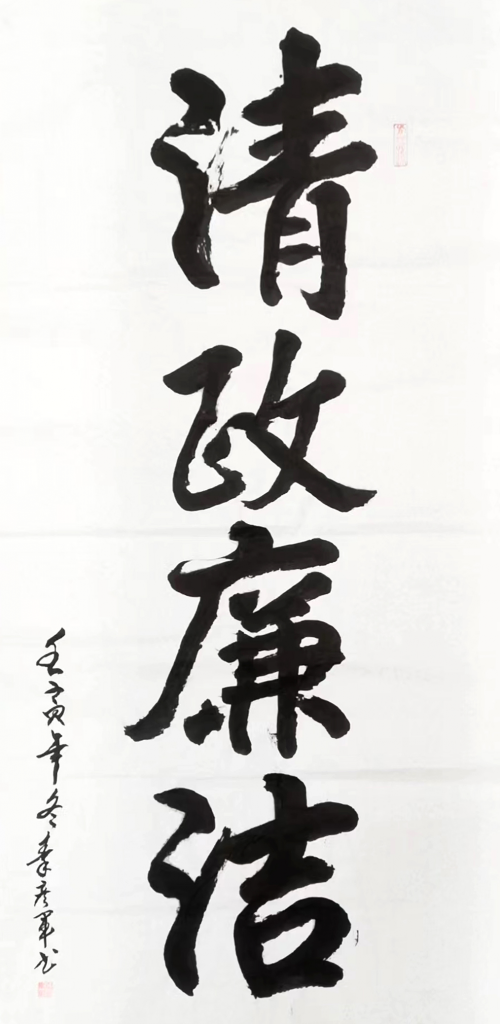 清政廉洁
壬寅年冬秦彦军书